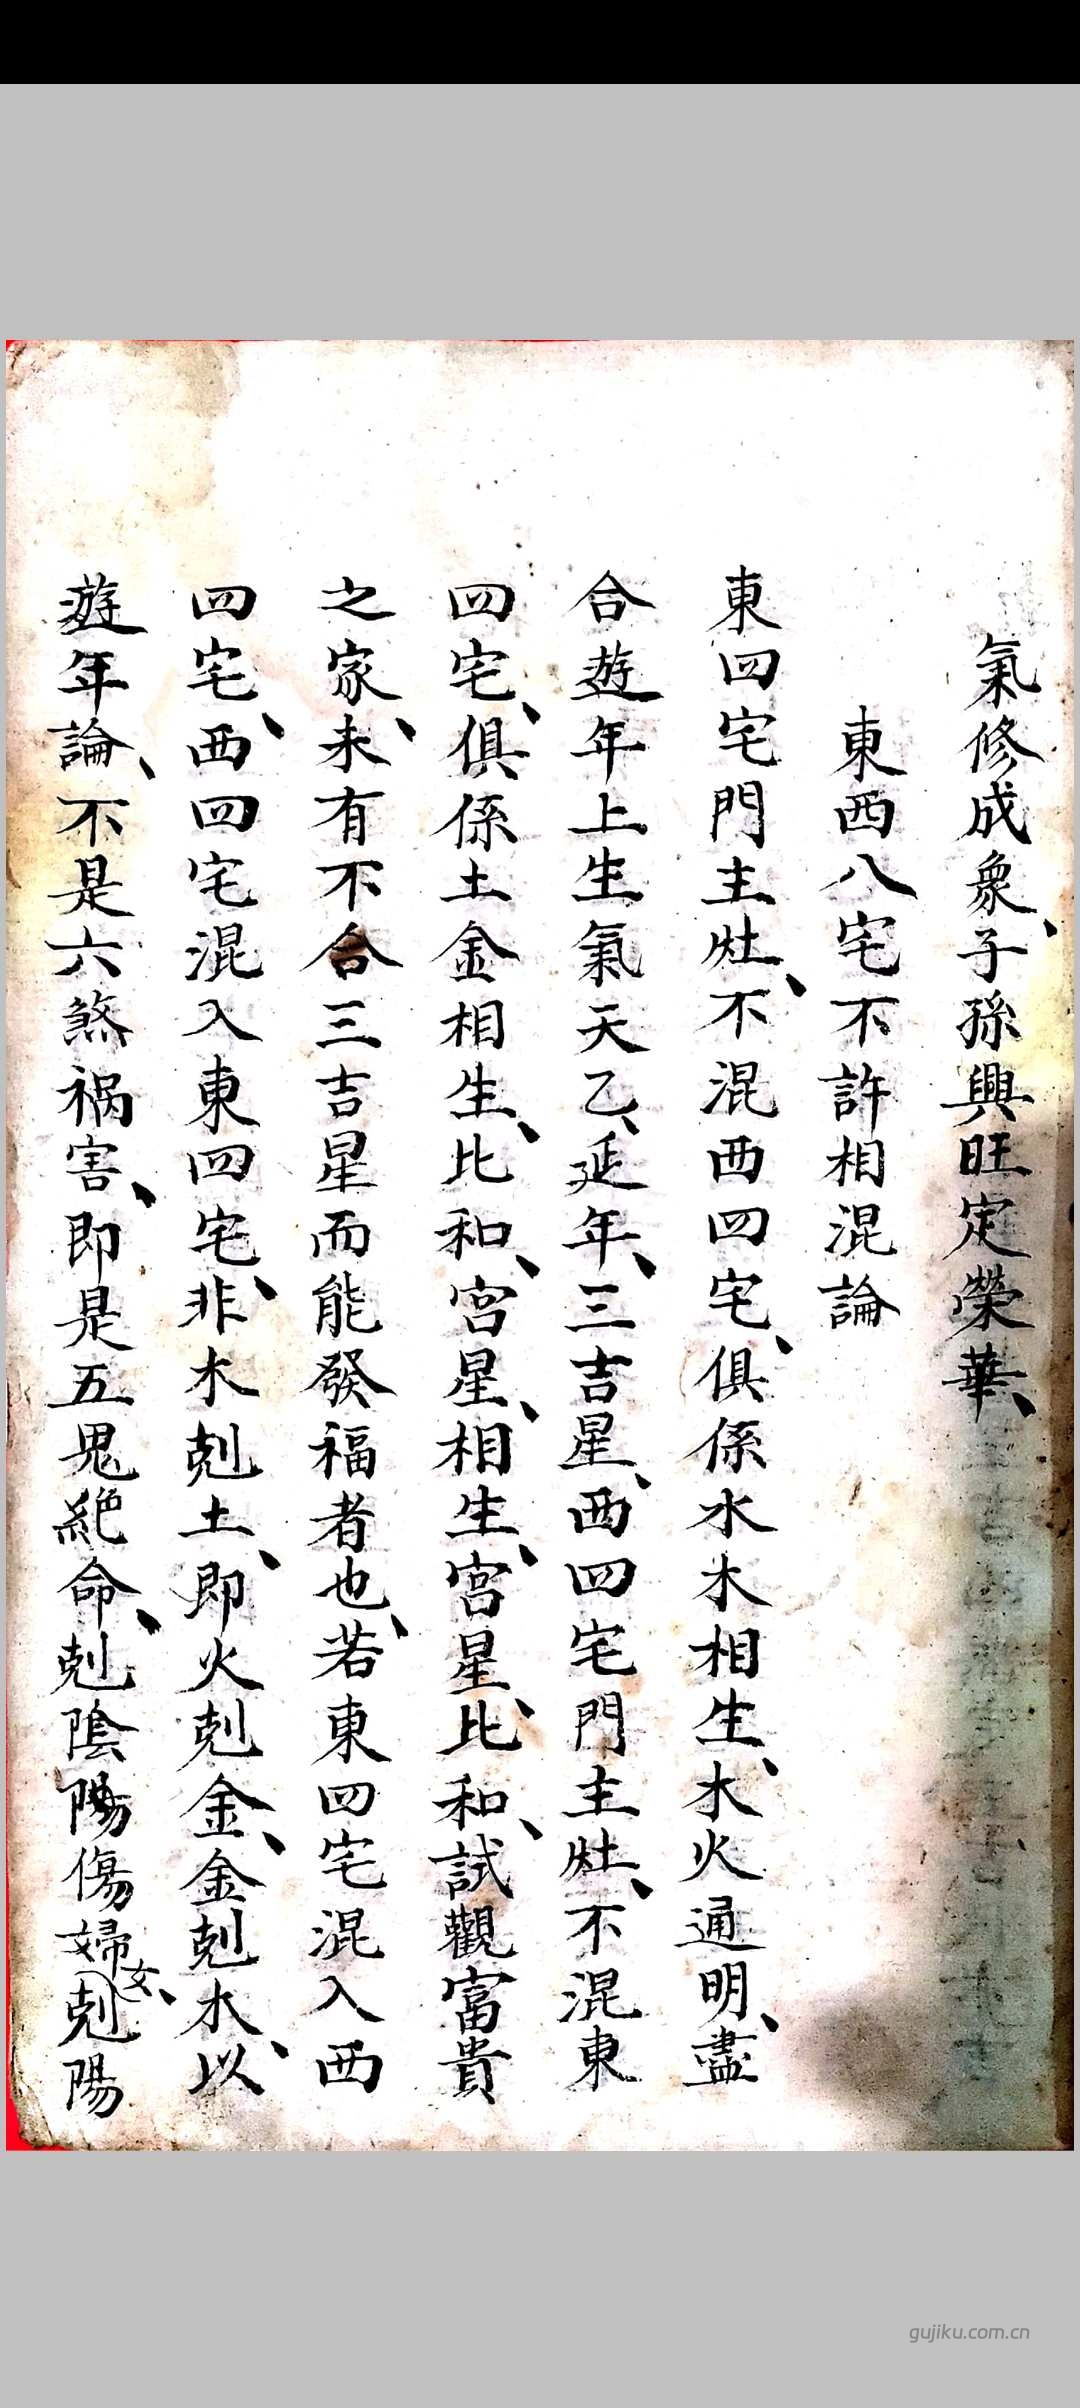 氣修成象、子孫興旺定榮華、
東西八宅不許相混論
東四宅門主灶、不混西四宅、俱係水木相生、木火通明、盡
合遊年上生氣天乙、延年、三吉星、西四宅門主灶、不混東
四宅、俱係土金相生、比和、宮星、相生、宮星、比和、試觀富貴
之家、未有不合三吉星而能發福者也、若東四宅混入西
四宅、西四宅混入東四宅、非木剋土、即火剋金、金剋木、以
遊年論、不是六煞祸害、即是五鬼絕命、剋陰陽傷婦女、剋陽
gujiku.com.cn